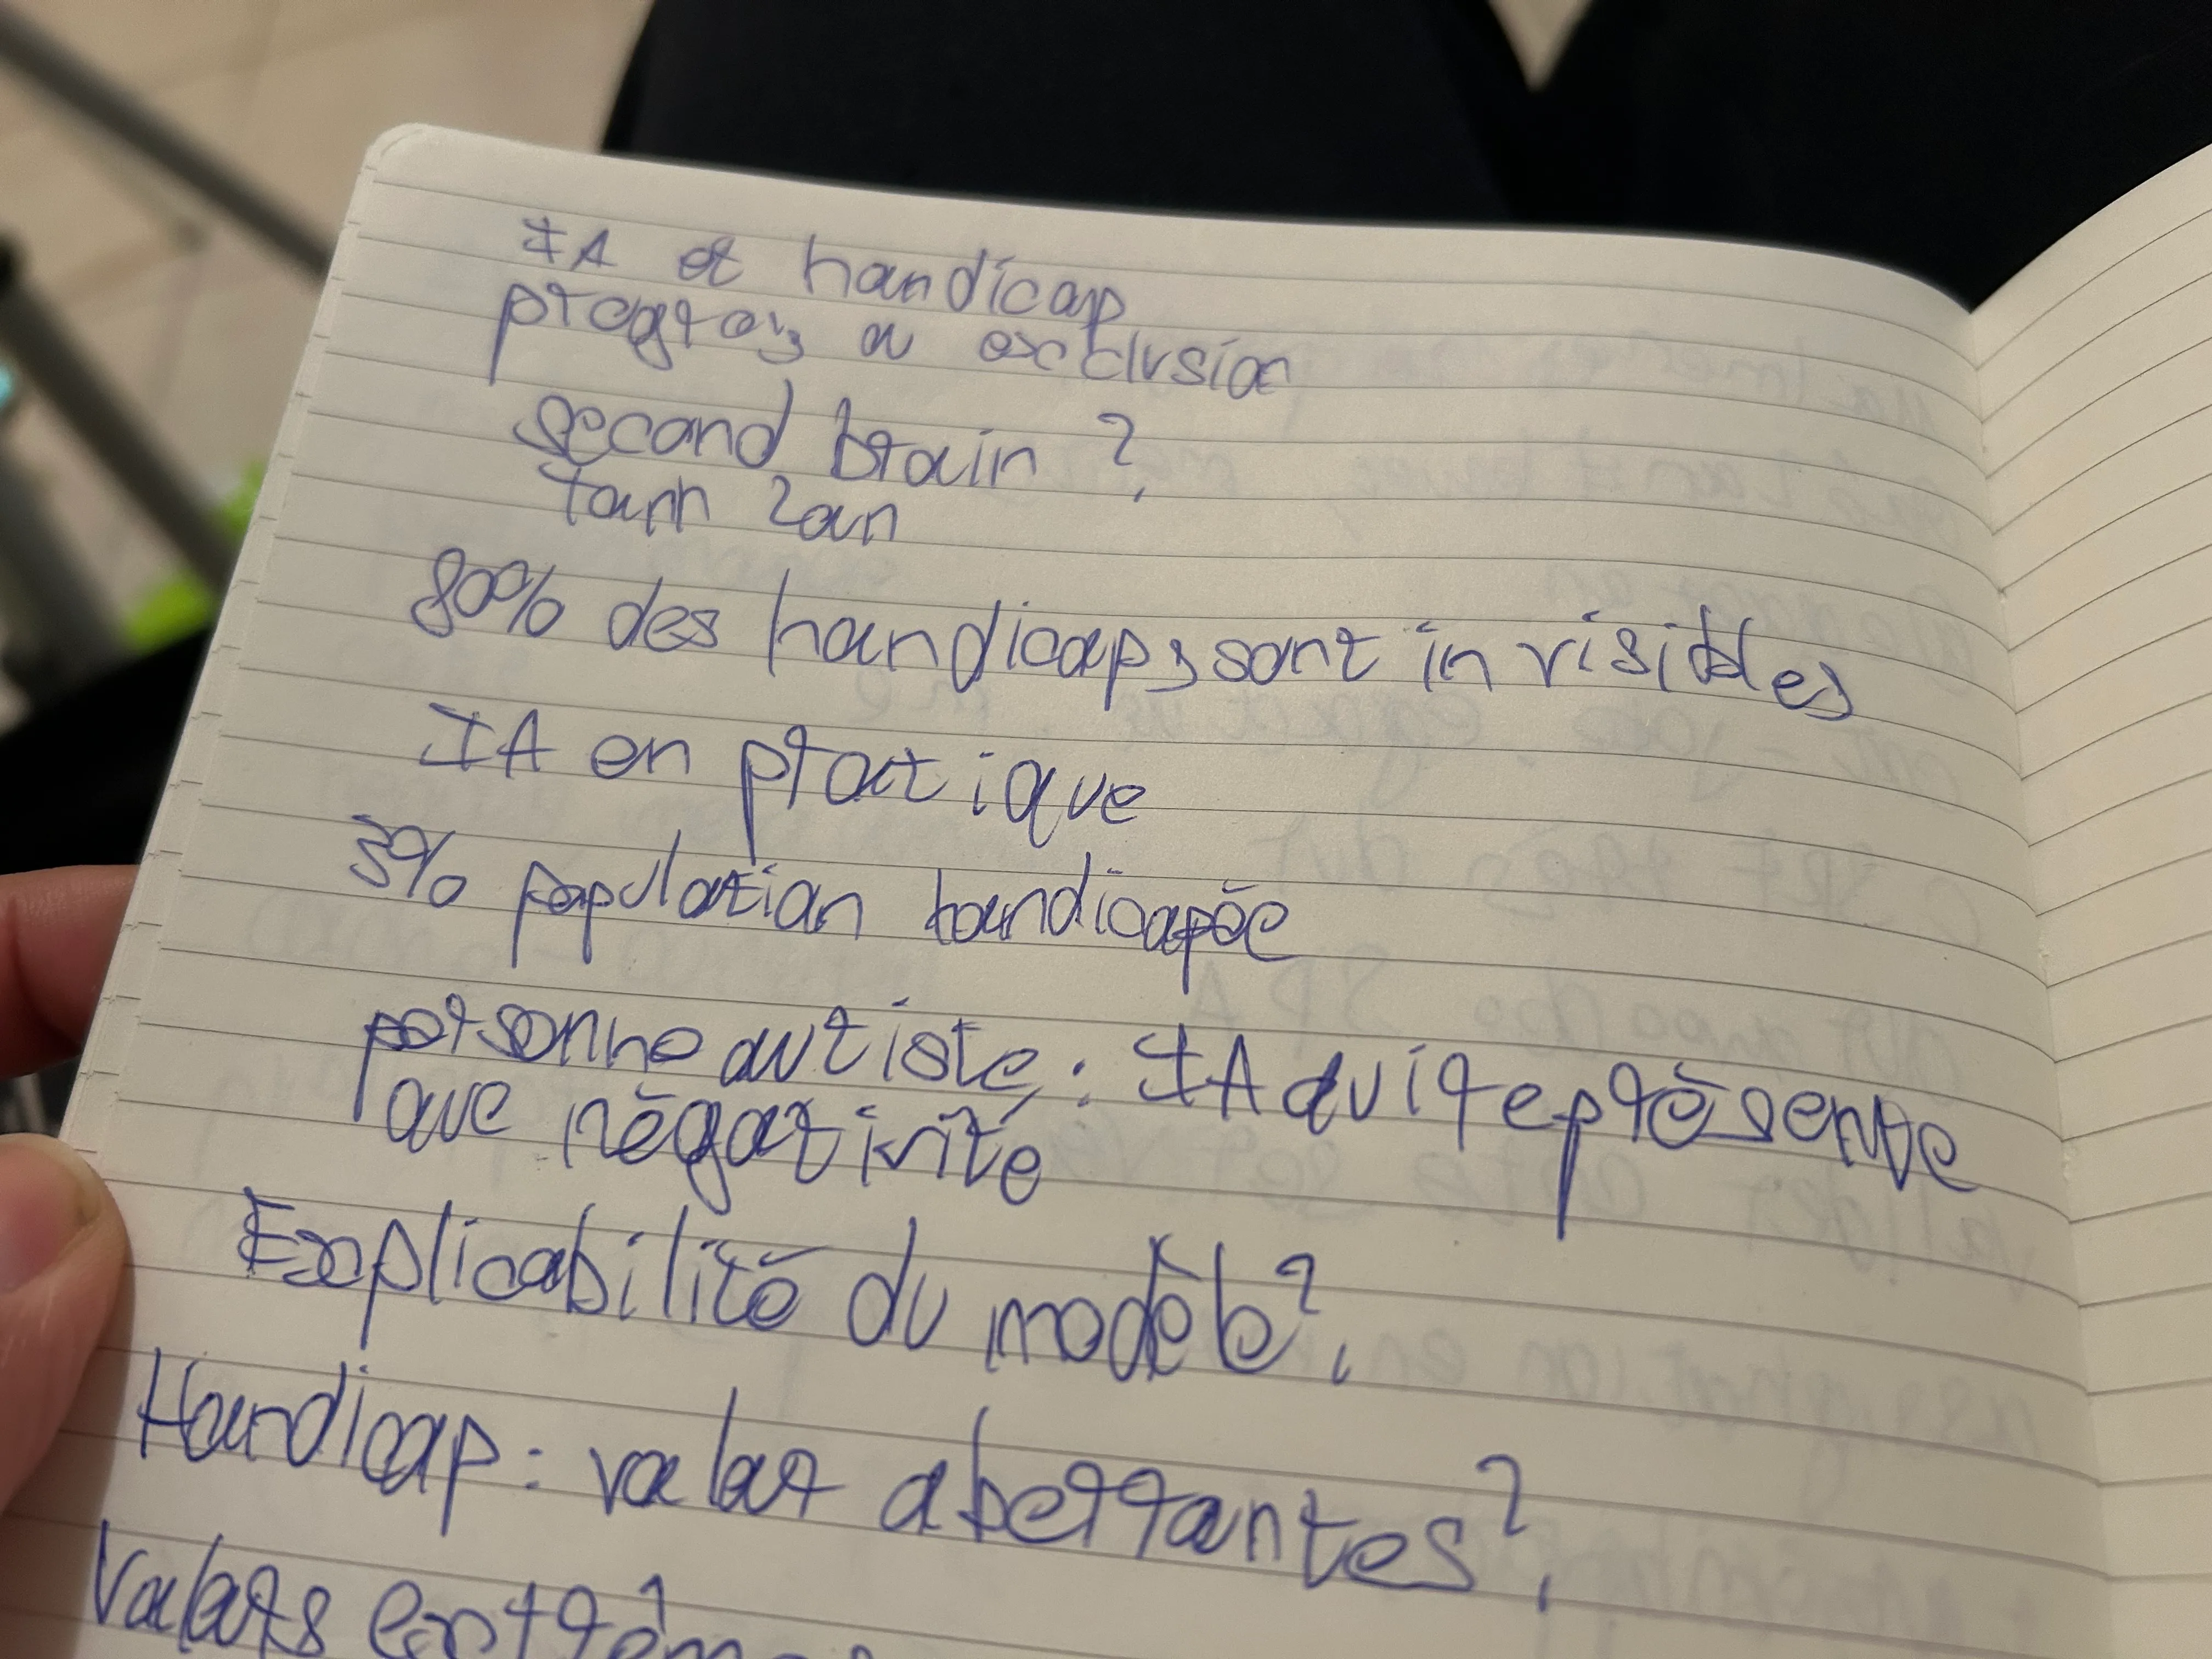 IA et handicap
progrès ou exclusion
second brain ?
80% des handicaps sont invisibles
IA en pratique
3% population handicapée
personne autiste : IA qui représente
que négativité
Explicabilité du modèle ?
Handicap : valeur aberrantes ?
Valeurs extrêm